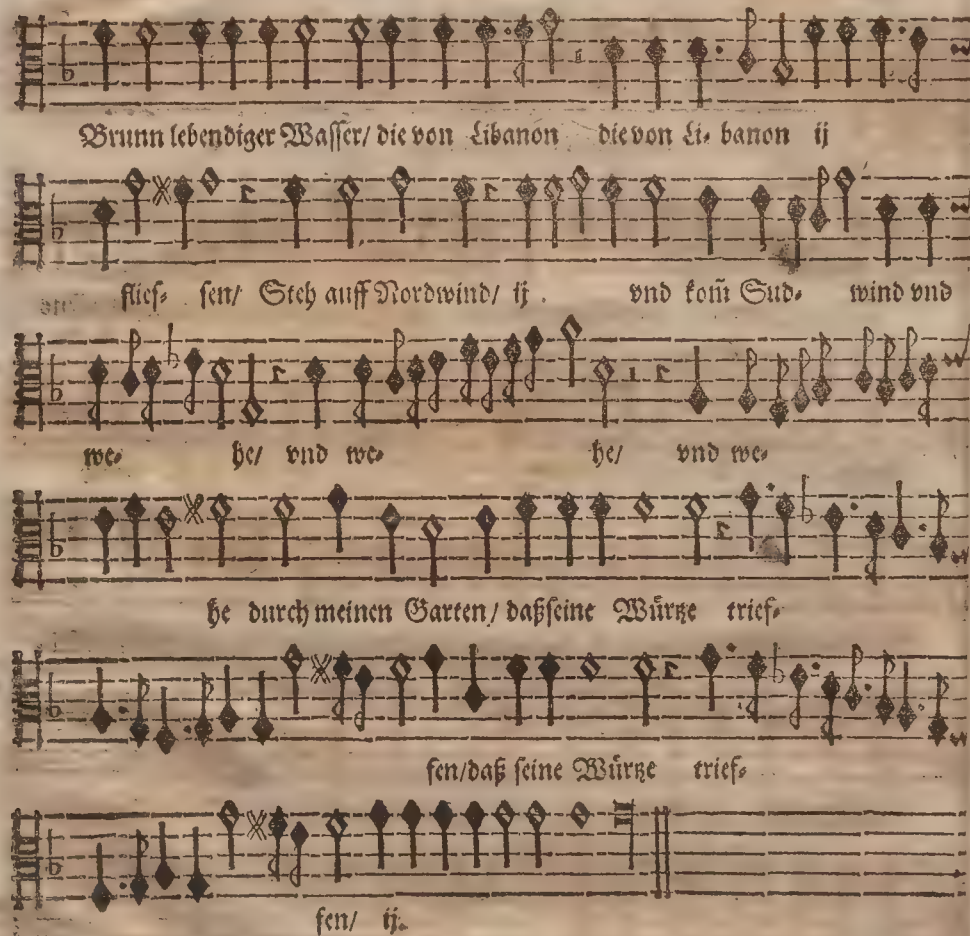 Brunn lebendiger Wasser/ die von Libanon die von Li- banon ij
flies- sen/ Steh auff Nordwind/ ij. vnd kom̃ Sud- wind vnd
we- he/ vnd we- he/ vnd we-
he durch meinen Garten/ daß seine Würtze trief-
fen/ daß seine Würtze trief-
fen/ ij.